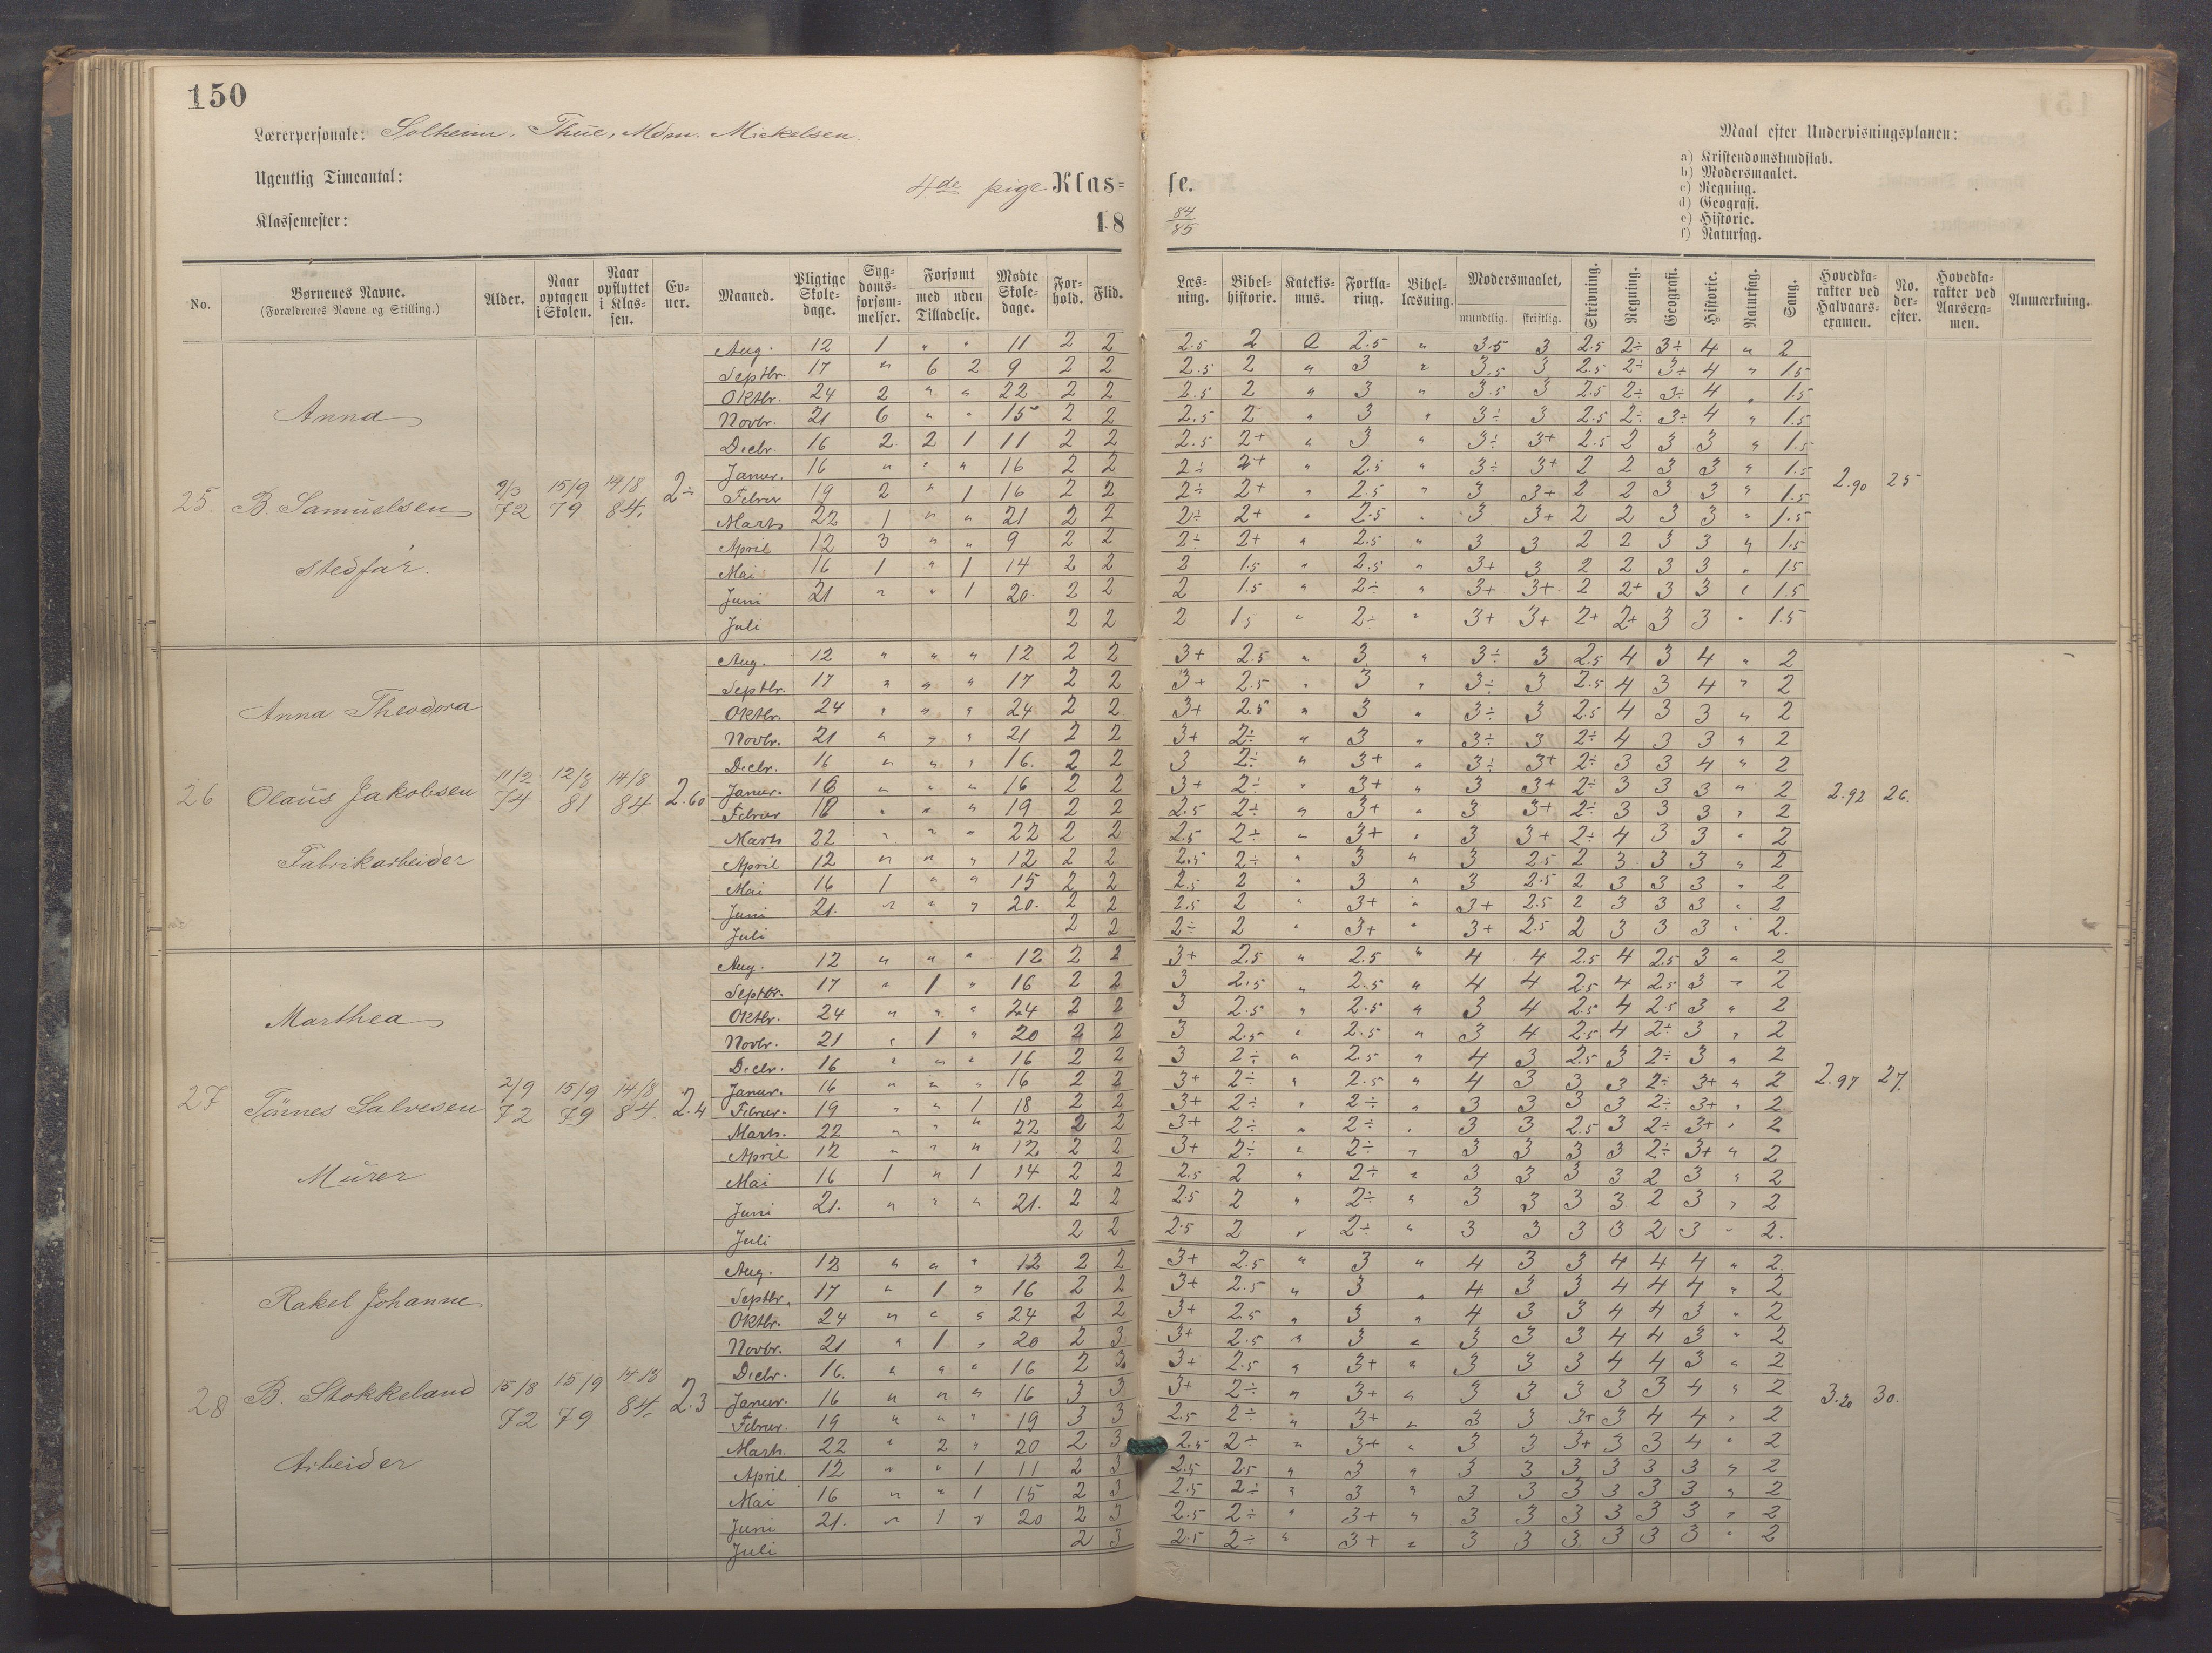 150
Lærerpersonale: Solheim, Thue, Mdm. Mickelsen.
Ugentlig Timeantal:
4de pige Klas= se.
Klassemester:
18 84/85
Maal efter Undervisningsplanen:
a) Kristendomskundskab.
b) Modersmaalet.
c) Regning.
d) Geografi.
e) Historie.
f) Naturfag.
No. | Børnenes Navne. (Forældrenes Navne og Stilling.) | Alder. | Naar optagen i Skolen. | Naar opflyttet i Klassen. | Evner. | Maaned. | Pligtige Skoledage. | Sygdomsforsømmelser. | Forsømt med / uden Tilladelse. | Mødte Skoledage. | Forhold. | Flid. | Læsning. | Bibelhistorie. | Katekismus. | Forklaring. | Bibellæsning. | Modersmaalet, mundtlig. | skriftlig. | Skrivning. | Regning. | Geografi. | Historie. | Naturfag. | Sang. | Hovedkarakter ved Halvaarsexamen. | No. derefter. | Hovedkarakter ved Aarsexamen. | Anmærkning.
25. Anna
B. Samuelsen
stedfar.
9/3 72 | 15/9 79 | 14/8 84. | 2÷ | 2.90 | 25
Aug. 12 1 " " 11 2 2 2.5 2 2 2.5 " 3.5 3 2.5 2÷ 3÷ 4 " 2
Septbr. 17 " 6 2 9 2 2 2.5 2 " 3 " 3.5 3 2.5 2÷ 3÷ 4 " 1.5
Oktbr. 24 2 " " 22 2 2 2.5 2 " 3 " 3.5 3 2.5 2÷ 3÷ 4 " 1.5
Novbr. 21 6 " " 15 2 2 2.5 2 " 3 " 3÷ 3 2.5 2÷ 3÷ 4 " 1.5
Decbr. 16 2 2 1 11 2 2 2.5 2+ " 3 " 3÷ 3+ 2.5 2 3 3 " 1.5
Januar. 16 " " " 16 2 2 2÷ 2+ " 2.5 " 3÷ 3+ 2 2 3 3 " 1.5
Februar 19 2 " 1 16 2 2 2÷ 2+ " 2.5 " 3 3+ 2 2 3 3 " 1.5
Marts 22 1 " " 21 2 2 2÷ 2+ " 2.5 " 3 3+ 2 2 3 3 " 1.5
April 12 3 " " 9 2 2 2÷ 2+ " 2.5 " 3 3 2 2 3 3 " 1.5
Mai 16 1 " 1 14 2 2 2 1.5 " 2.5 " 3+ 3 2 2 3 3 " 1.5
Juni 21 " " 1 20. 2 2 2 1.5 " 2÷ " 3+ 3+ 2 2+ 3 3 " 1.5
Juli 2 2 2 1.5 " 2÷ " 3+ 3+ 2+ 2+ 3 3 " 1.5
26 Anna Theodora
Olaus Jakobsen
Fabrikarbeider
11/2 74 | 12/8 81 | 14/8 84 | 2.60 | 2.92 | 26.
Aug. 12 " " " 12 2 2 3+ 2.5 " 3 " 3÷ 3 2.5 4 3 4 " 2
Septbr. 17 " " " 17 2 2 3+ 2.5 " 3 " 3÷ 3 2.5 4 3 4 " 2
Oktbr. 24 " " " 24 2 2 3+ 2.5 " 3 " 3÷ 3 2.5 4 3 3 " 2
Novbr. 21 " " " 21 2 2 3+ 2÷ " 3 " 3÷ 3 2÷ 4 3 3 " 2
Decbr. 16 " " " 16. 2 2 3 2÷ " 3+ " 3÷ 3+ 2÷ 3 3 4 " 2
Januar. 16 " " " 16 2 2 3+ 2÷ " 3+ " 3 3+ 2÷ 3 3 3 " 2
Februar " " " 19 2 2 2.5 2÷ " 3+ " 3 3+ 2÷ 3 3 3 " 2
Marts 22 " " " 22 2 2 2.5 2÷ " 3+ " 3 3+ 2÷ 4 3 3 " 2
April 12 " " " 12 2 2 2.5 2÷ " 3 " 3 2.5 2 3 3 3 " 2
Mai 16 1 " " 15 2 2 2.5 2 " 3 " 3 2.5 2 3 3 3 " 2
Juni 21. " " " 20. 2 2 2.5 2 " 3+ " 3+ 2.5 2 3 3 3 " 2
Juli 2 2 2÷ 2 " 3+ " 3+ 2.5 2 3 3 3 " 2.
27 Marthea
Tønnes Salvesen
Murer
2/9 72 | 15/9 79 | 14/8 84. | 2.4 | 2.97 | 27.
Aug. 12 " " " 12 2 2 3+ 2.5 " 2.5 " 4 4 2.5 4 2.5 3 " 2
Septbr. 17 " 1 " 16 2 2 3 2.5 " 2.5 " 4 4 2.5 4 2.5 3 " 2
Oktbr. 24 " " " 24 2 2 3 2.5 " 2.5 " 3 4 2.5 4 2.5 3 " 2
Novbr. 21 " 1 " 20 2 2 3 2.5 " 2.5 " 3 4 2.5 4 2÷ 3 " 2
Decbr. 16 " " " 16 2 2 3 2÷ " 2.5 " 4 3 2.5 3 2÷ 3 " 2
Januar. 16 " " " 16 2 2 3+ 2÷ " 2.5 " 4 3 3 3 2÷ 3+ " 2
Februar. 19 " " 1 18 2 2 3+ 2÷ " 2÷ " 3 3 3 3 2÷ 3+ " 2
Marts. 22 " " " 22 2 2 3+ 2÷ " 2÷ " 3 3 2.5 3 2÷ 3+ " 2
April 12 " " " 12 2 2 3+ 2÷ " 2÷ " 3 3 3 3 2÷ 3+ " 2
Mai 16 1 " 1 14 2 2 2.5 2 " 2÷ " 3 3 3 3 2 3 " 2
Juni 21. " " " 21. 2 2 2.5 2 " 2÷ " 3 3 3 3 2 3 " 2
Juli 2 2 2.5 2 " 2÷ " 3 3 3 3 2 3 " 2.
28 Rakel Johanne
B. Stokkeland
Arbeider
15/8 72 | 15/9 79 | 14/8 84. | 2.3 | 3.20 | 30.
Aug. 12 " " " 12 2 2 3+ 2.5 " 3 " 4 3 3 4 4 4 " 2.
Septbr. 17 " 1 " 16 2 2 3+ 2.5 " 3 " 4 3 3 4 4 4 " 2
Oktbr. 24 " " " 24 2 2 3+ 2.5 " 3 " 4 3 3 4 4 3 " 2
Novbr. 21 " 1 " 20 2 3 3+ 2.5 " 3 " 3 3 3 4 4 3 " 2
Decbr. 16. " " " 16 2 3 3+ 2.5 " 3+ " 3 3 3 4 4 3 " 2
Januar. 16 " " " 16 3 3 3+ 2÷ " 3+ " 3 3 3 3 3 4 " 2
Februar. 19 " " " 19 3 3 2.5 2÷ " 3+ " 3 3 3+ 3 4 4 " 2
Marts. 22 " 2 " 20 2 3 2.5 2÷ " 3+ " 3 3 3+ 3 3 4 " 2
April 12 " " 1 11 2 3 2.5 2.5 " 3 " 3 3 3 3 3 3 " 2
Mai 16 " " 1 15 2 3 2.5 2÷ " 3 " 3 3 3 3 3 3 " 2
Juni 21. " 1 " 20 2 3 2.5 2÷ " 3+ " 3 3 3 3 3 3 " 2
Juli 2 3 2.5 2÷ " 3+ " 3 3 3 3 3 3 " 2